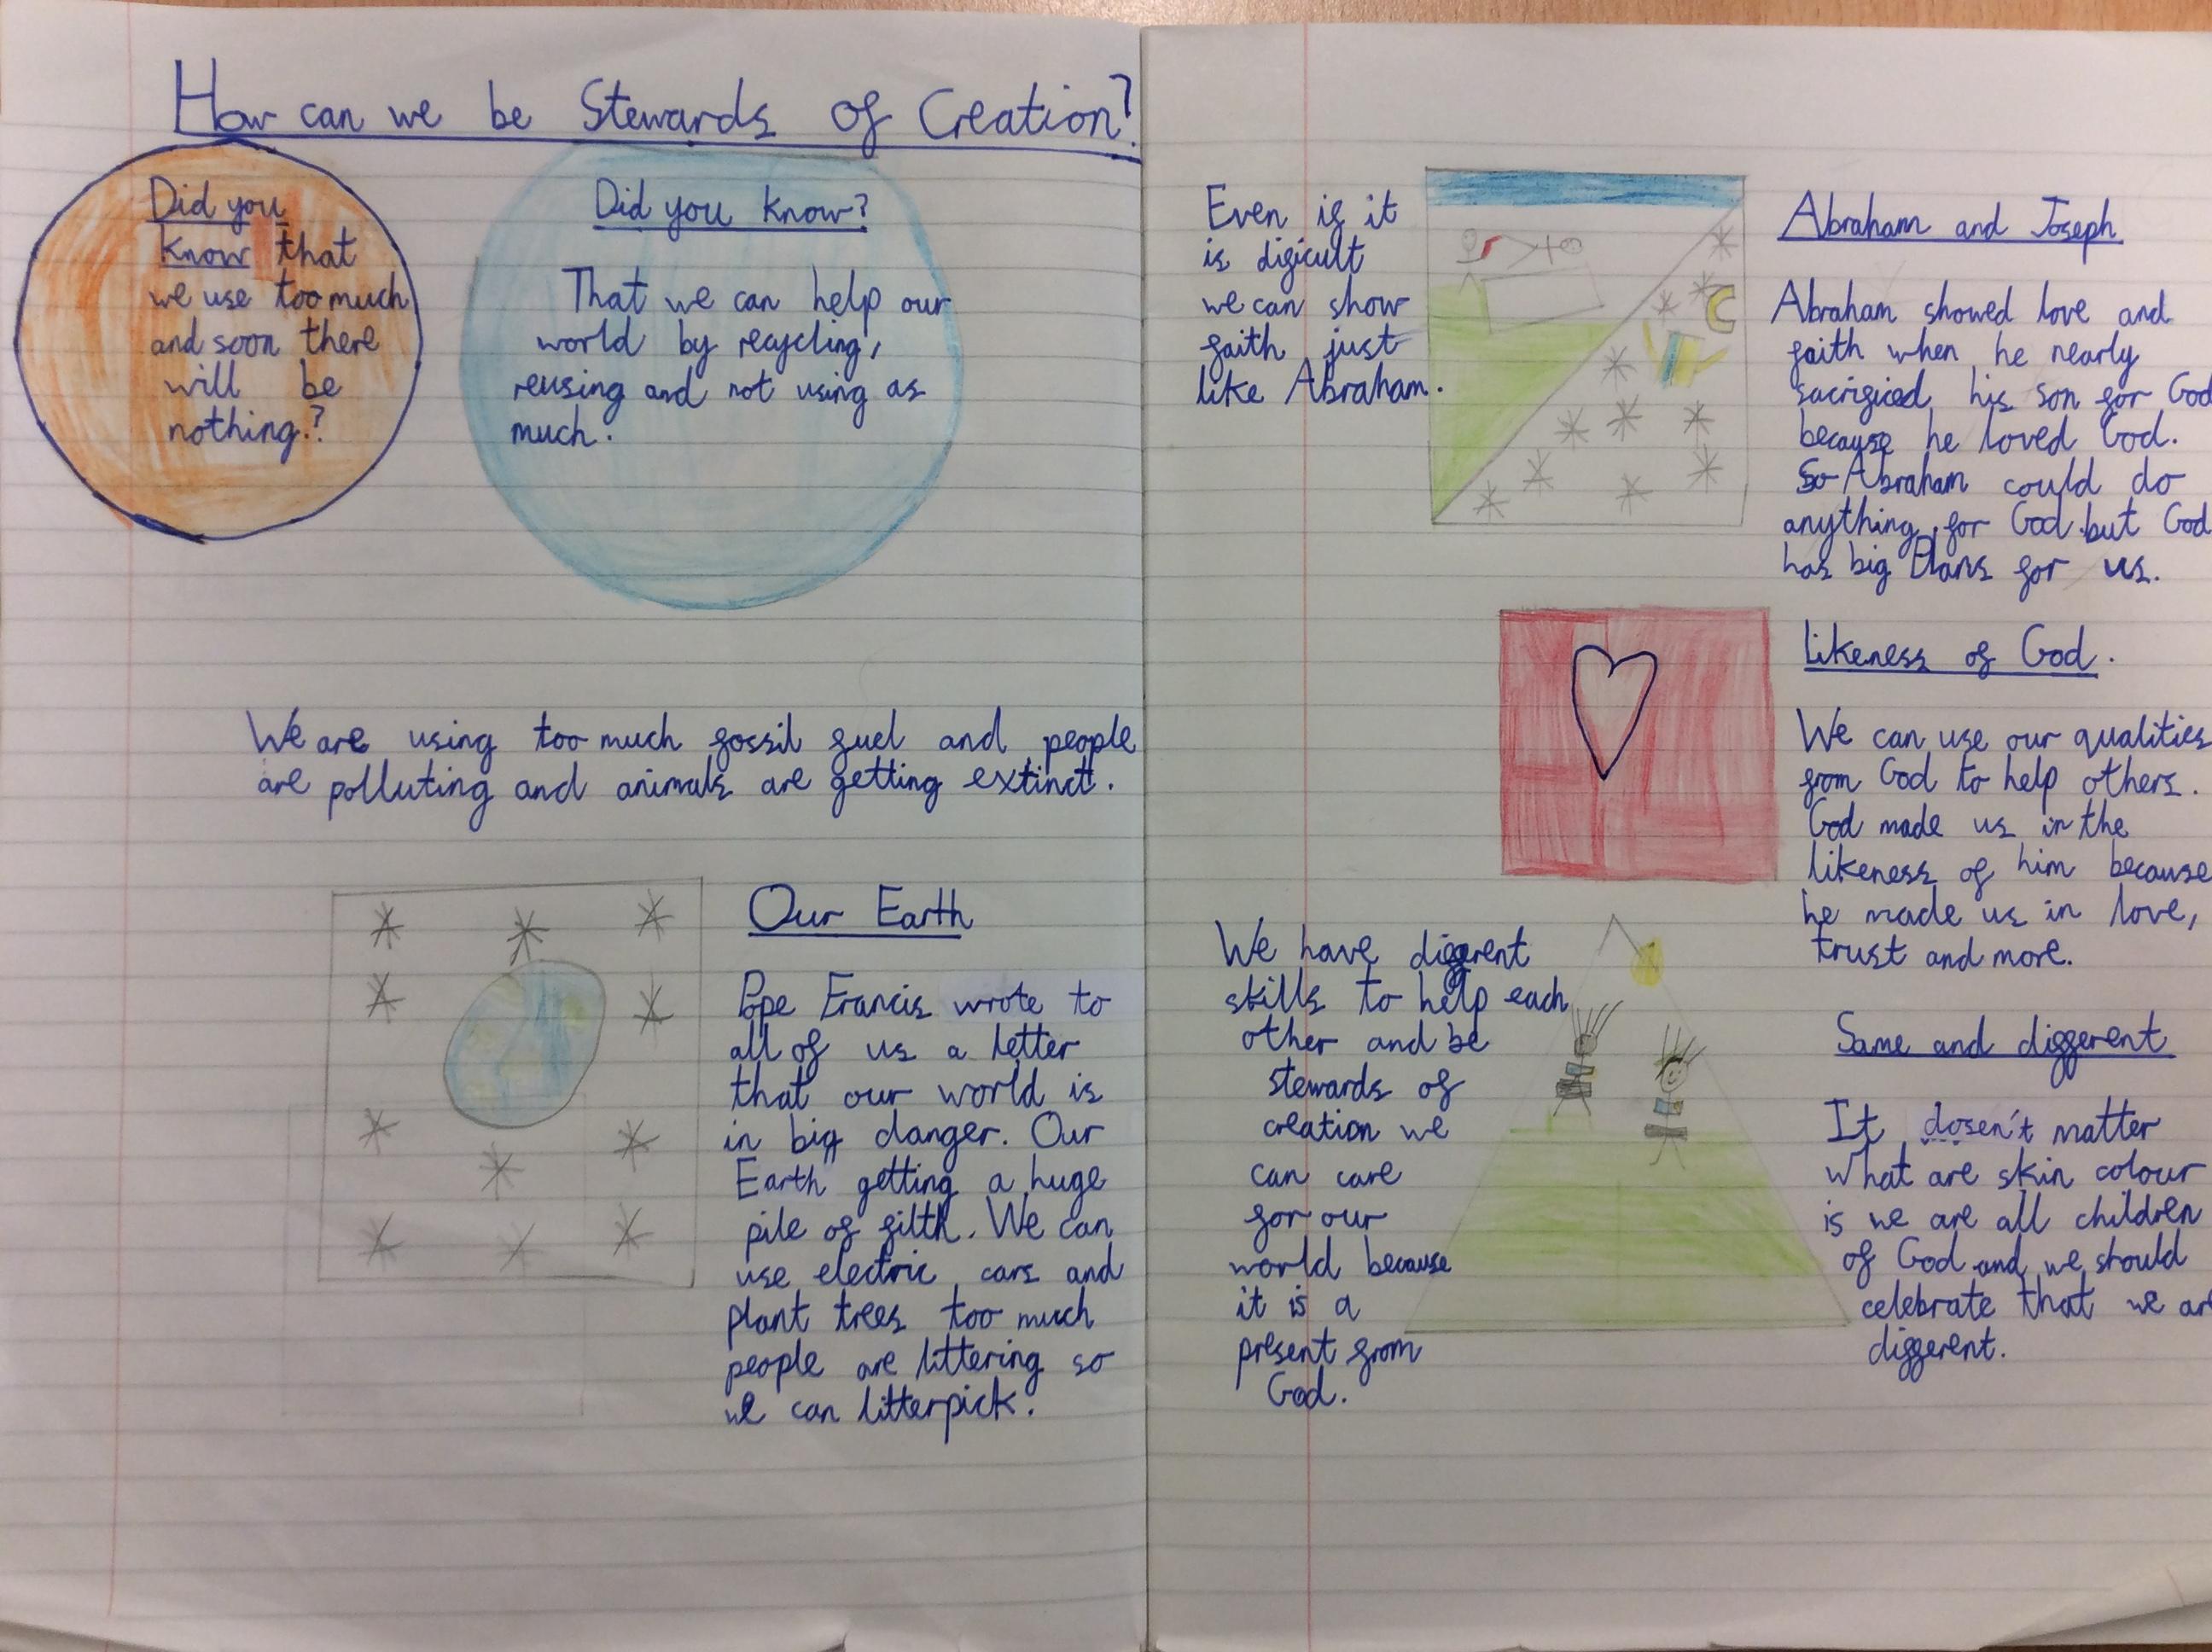 How can we be Stewards of Creation?
Did you
know that
we use too much
and soon there
will be
nothing.?
Did you know?
That we can help our
world by recycling,
reusing and not using as
much.
We are using too much fossil fuel and people
are polluting and animals are getting extinct.
Our Earth
Pope Francis wrote to
all of us a letter
that our world is
in big danger. Our
Earth getting a huge
pile of filth. We can
use electric cars and
plant trees too much
people are littering so
we can litterpick.
Even if it
is dificult
we can show
faith just
like Abraham.
Abraham and Joseph
Abraham showed love and
faith when he nearly
sacrificed his son for God
because he loved God.
So Abraham could do
anything for God but God
has big Plans for us.
likeness of God.
We can use our qualities
from God to help others.
God made us in the
likeness of him because
he made us in love,
trust and more.
We have different
skills to help each
other and be
stewards of
creation we
can care
for our
world because
it is a
present from
God.
Same and different
It dosen't matter
what are skin colour
is we are all children
of God and we should
celebrate that we are
different.